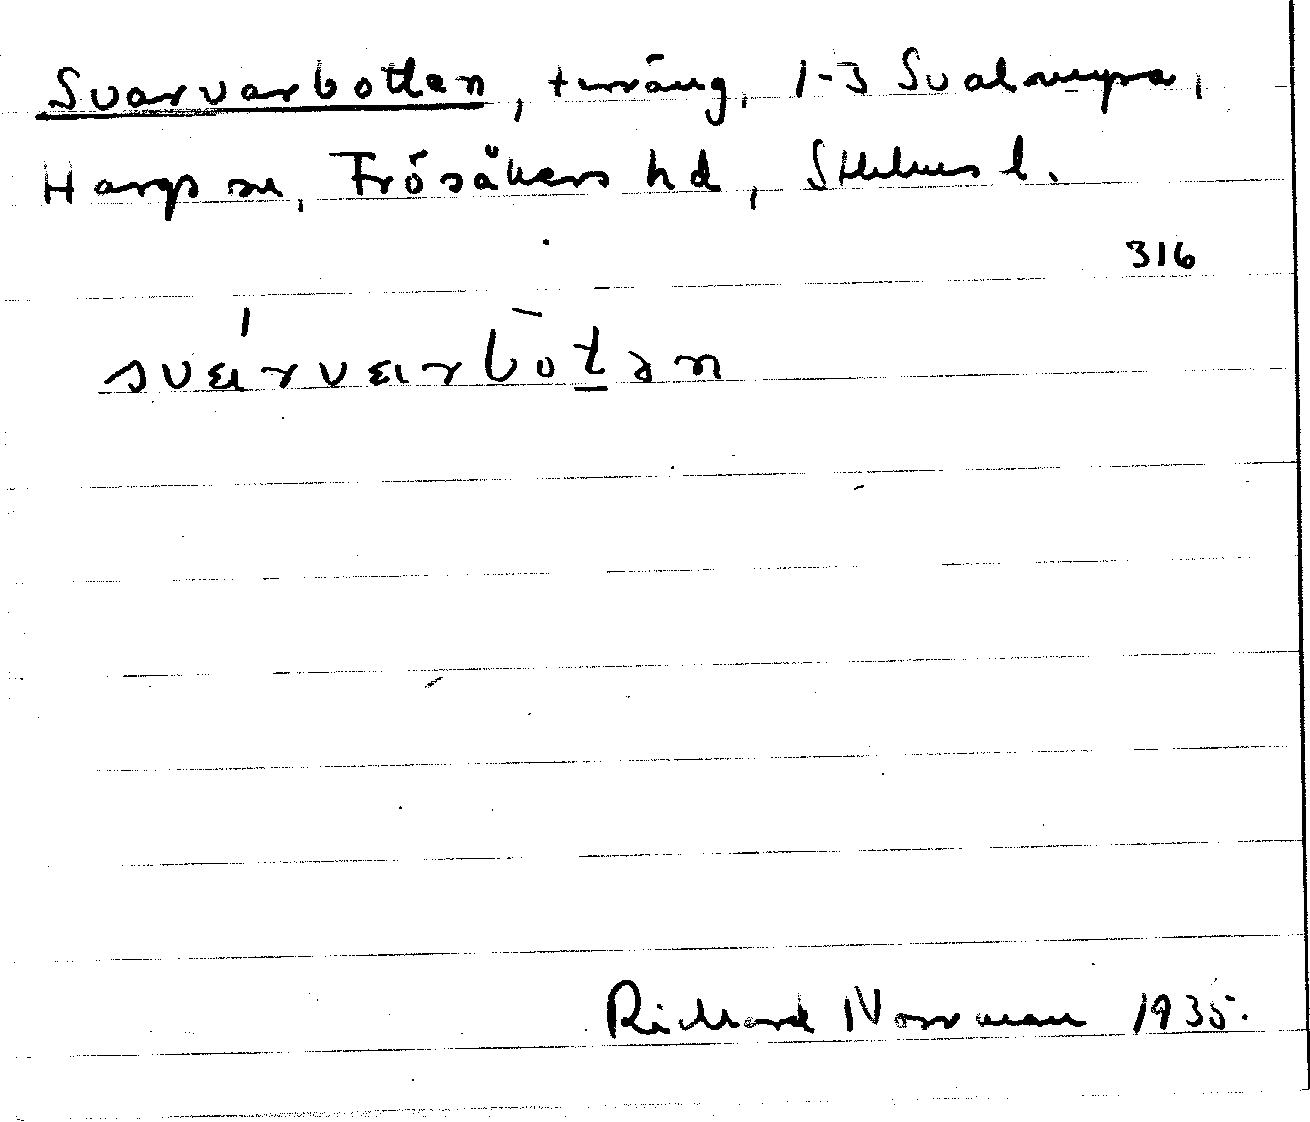 Svarvarbotten, t urväng, 1-3 Svalmyra,
Hargs sn, Frösåkers hd, Sthlms l.
316
svɑrvɑrbotən
Richard Norrman 1935.